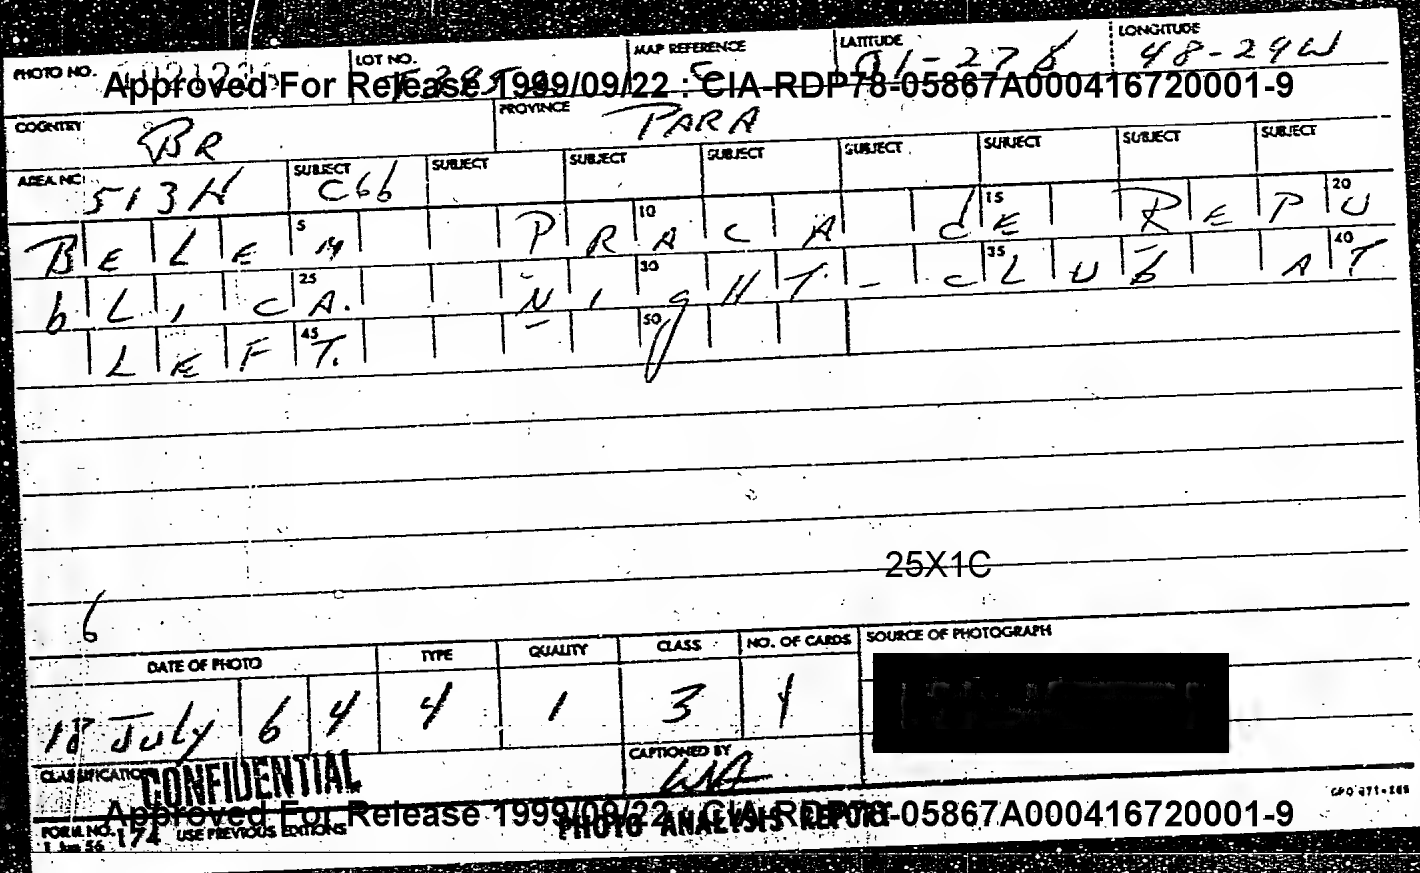 PHOTO NO. LOT NO. MAP REFERENCE LATITUDE 01-27S LONGITUDE 48-29W
Approved For Release 1999/09/22 : CIA-RDP78-05867A000416720001-9
COUNTRY BR PROVINCE PARA
AREA NO. 513H SUBJECT C66 SUBJECT SUBJECT SUBJECT SUBJECT SUBJECT SUBJECT SUBJECT
5 10 15 20
BELEM PRACA dE REPU
25 30 35 40
bLICA. NIgHT-cLUB AT
45 50
LEFT.
25X1C
6
DATE OF PHOTO TYPE QUALITY CLASS NO. OF CARDS SOURCE OF PHOTOGRAPH
18 July 64 4 1 3 1
CLASSIFICATION CONFIDENTIAL CAPTIONED BY
Approved For Release 1999/09/22 : CIA-RDP78-05867A000416720001-9
FORM NO. 174 USE PREVIOUS EDITIONS PHOTO ANALYSIS REPORT
1 Jun 56